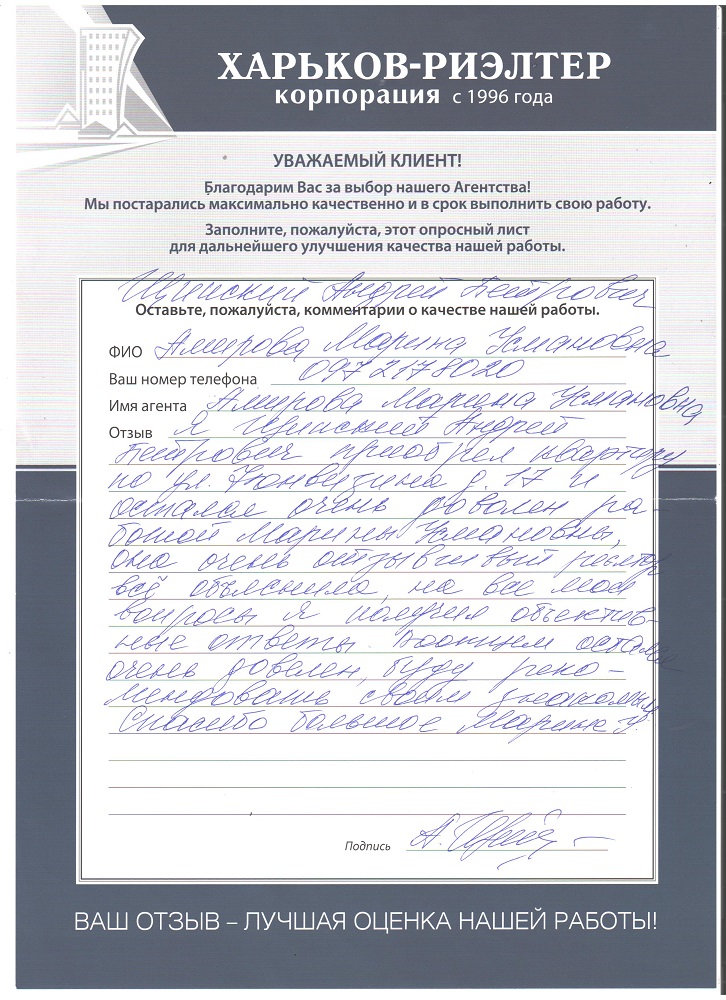 ХАРЬКОВ-РИЭЛТЕР
корпорация с 1996 года
УВАЖАЕМЫЙ КЛИЕНТ!
Благодарим Вас за выбор нашего Агентства!
Мы постарались максимально качественно и в срок выполнить свою работу.
Заполните, пожалуйста, этот опросный лист
для дальнейшего улучшения качества нашей работы.
Андрей Петрович
Оставьте, пожалуйста, комментарии о качестве нашей работы.
ФИО Амирова Марина Усмановна
Ваш номер телефона 0972178020
Имя агента Амирова Марина Усмановна
Отзыв Я Андрей
Петрович приобрел квартиру
по ул. д. 17 и
остался очень доволен ра-
ботой Марины Усмановны,
она очень отзывчивый риелтор
всё объяснила, на все мои
вопросы я получил объектив-
ные ответы. Вообщем остался
очень доволен, буду реко-
мендовать своим знакомым
Спасибо большое Марине У.
Подпись А.
ВАШ ОТЗЫВ – ЛУЧШАЯ ОЦЕНКА НАШЕЙ РАБОТЫ!